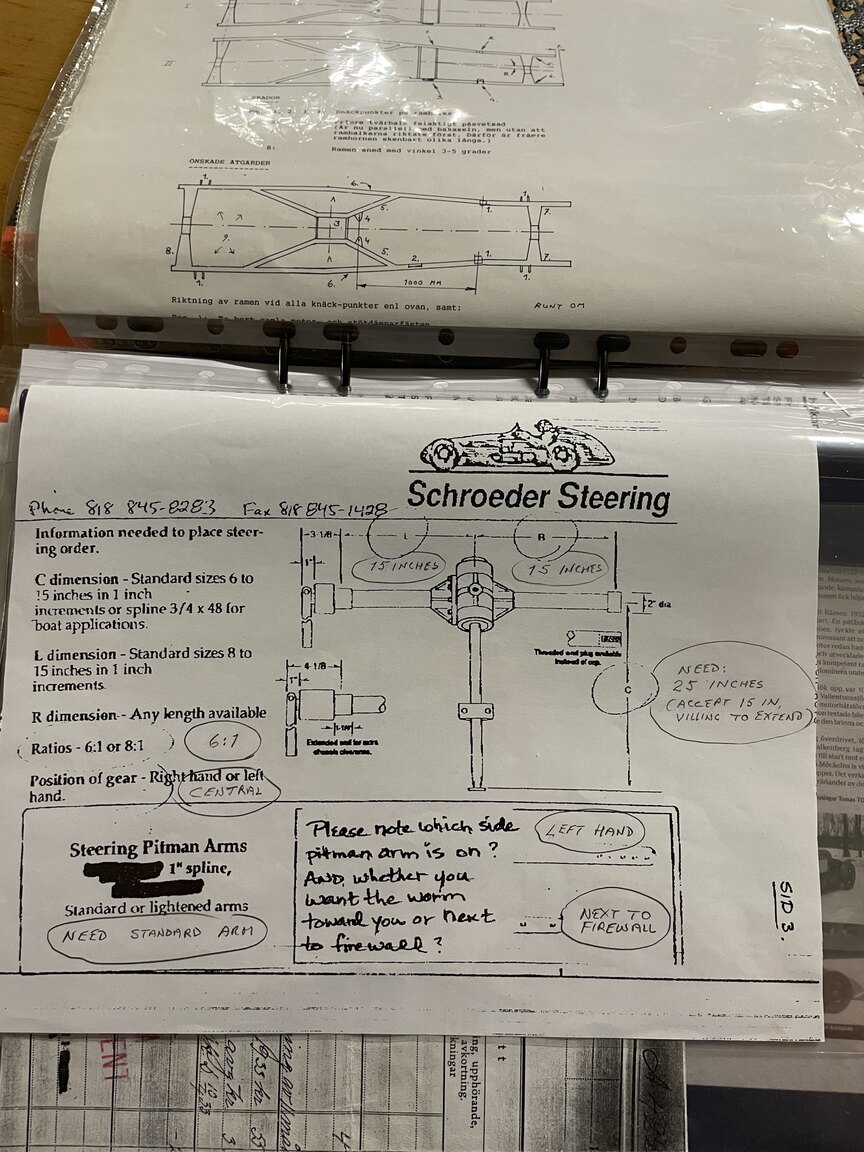 I
II
SKADOR
Knäckpunkter på rambalkar
främre tvärbalk felaktigt påsvetsad
(Är nu parallell med bakaxeln, men utan att
rambalkarna riktats först. Därför är främre
ramhornen skenbart olika långa.)
8: Ramen sned med vinkel 3-5 grader
ÖNSKADE ÅTGÄRDER
1. 6. 1.
5. 1. 7.
3 4
9. 4
8. 5. 2. 1. 7.
1. 6. 1000 MM 1.
Riktning av ramen vid alla knäck-punkter enl ovan, samt: RUNT OM
Schroeder Steering
Phone 818 845-8283 Fax 818 845-1428
Information needed to place steer-
ing order.
C dimension - Standard sizes 6 to
15 inches in 1 inch
increments or spline 3/4 x 48 for
boat applications.
L dimension - Standard sizes 8 to
15 inches in 1 inch
increments.
R dimension - Any length available
Ratios - 6:1 or 8:1
6:1
Position of gear - Right hand or left
hand.
CENTRAL
3 1/8 L R
1"
15 INCHES 15 INCHES
2" dia
Threaded end plug available
instead of cap.
4 1/8
1"
Extended end for extra
chassis clearance.
C
NEED:
25 INCHES
(ACCEPT 15 IN,
VILLING TO EXTEND)
Steering Pitman Arms
1" spline,
Standard or lightened arms
NEED STANDARD ARM
Please note which side
pitman arm is on?
AND, whether you
want the worm
toward you or next
to firewall?
LEFT HAND
NEXT TO
FIREWALL
SID 3.
ng, upphörande,
avkortning
kningar